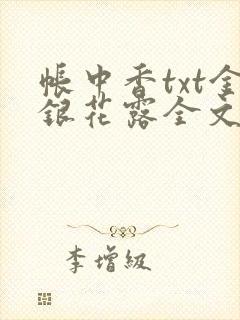 帳中香txt金
銀花露全文
李增級